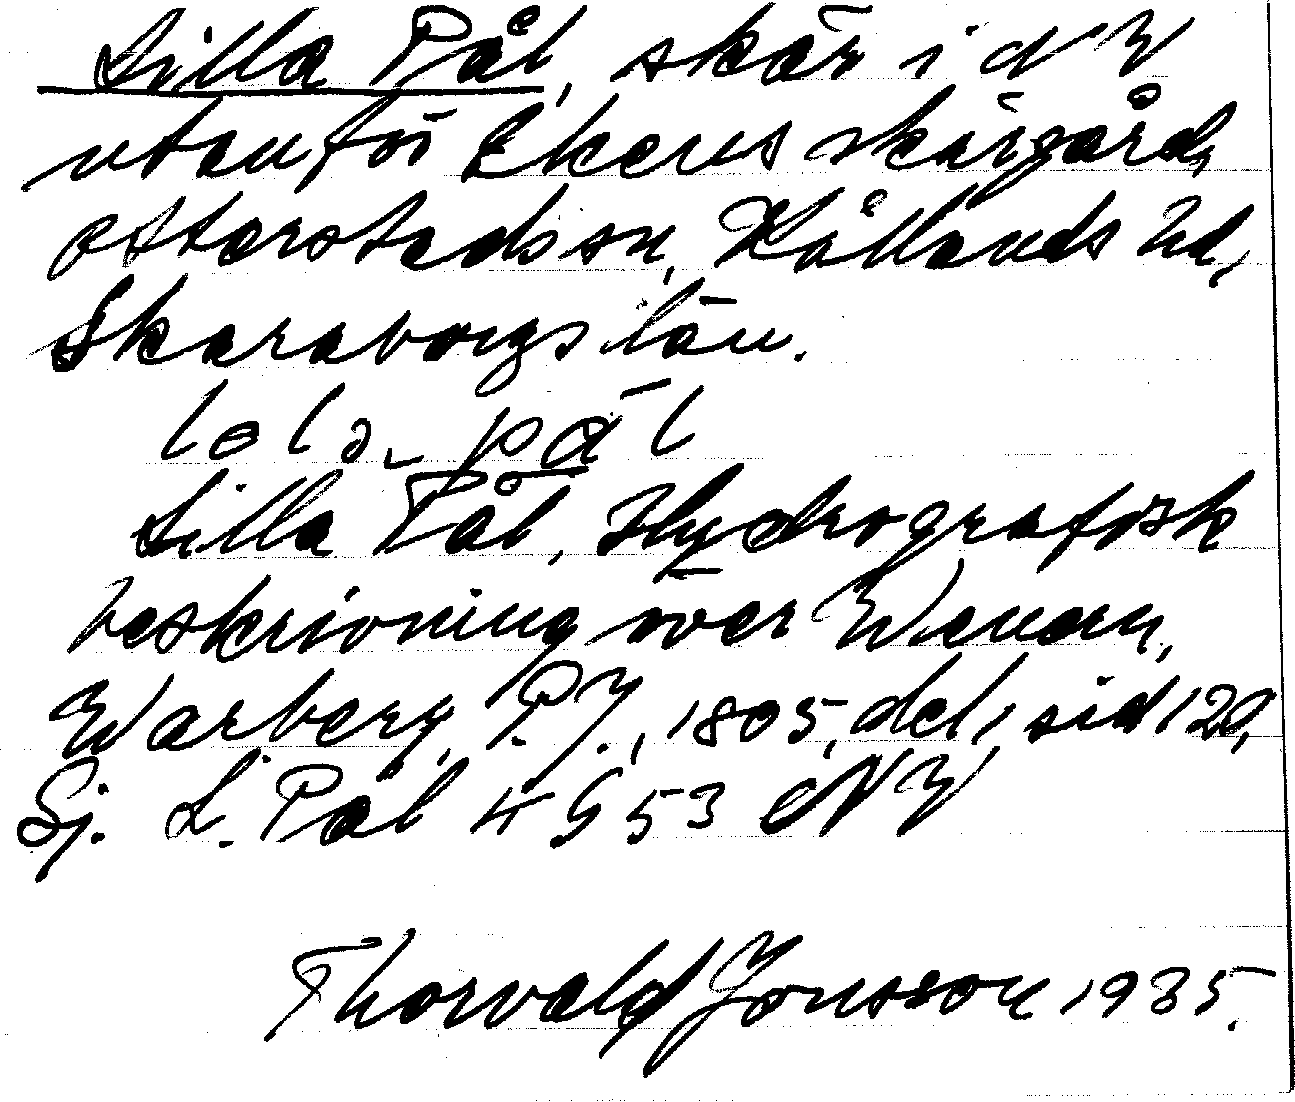 Lilla Pål, skär i NV
utanför Ekens skärgård,
Otterstads sn, Kållands hd,
Skaraborgs län.
Lilla Pål, Hydrografisk
beskrivning över Wenern,
Warberg, P.Y., 1805, del 1, sid 120,
Sj. L. Pål 4G53 NV
Thorvald Jonsson 1935.